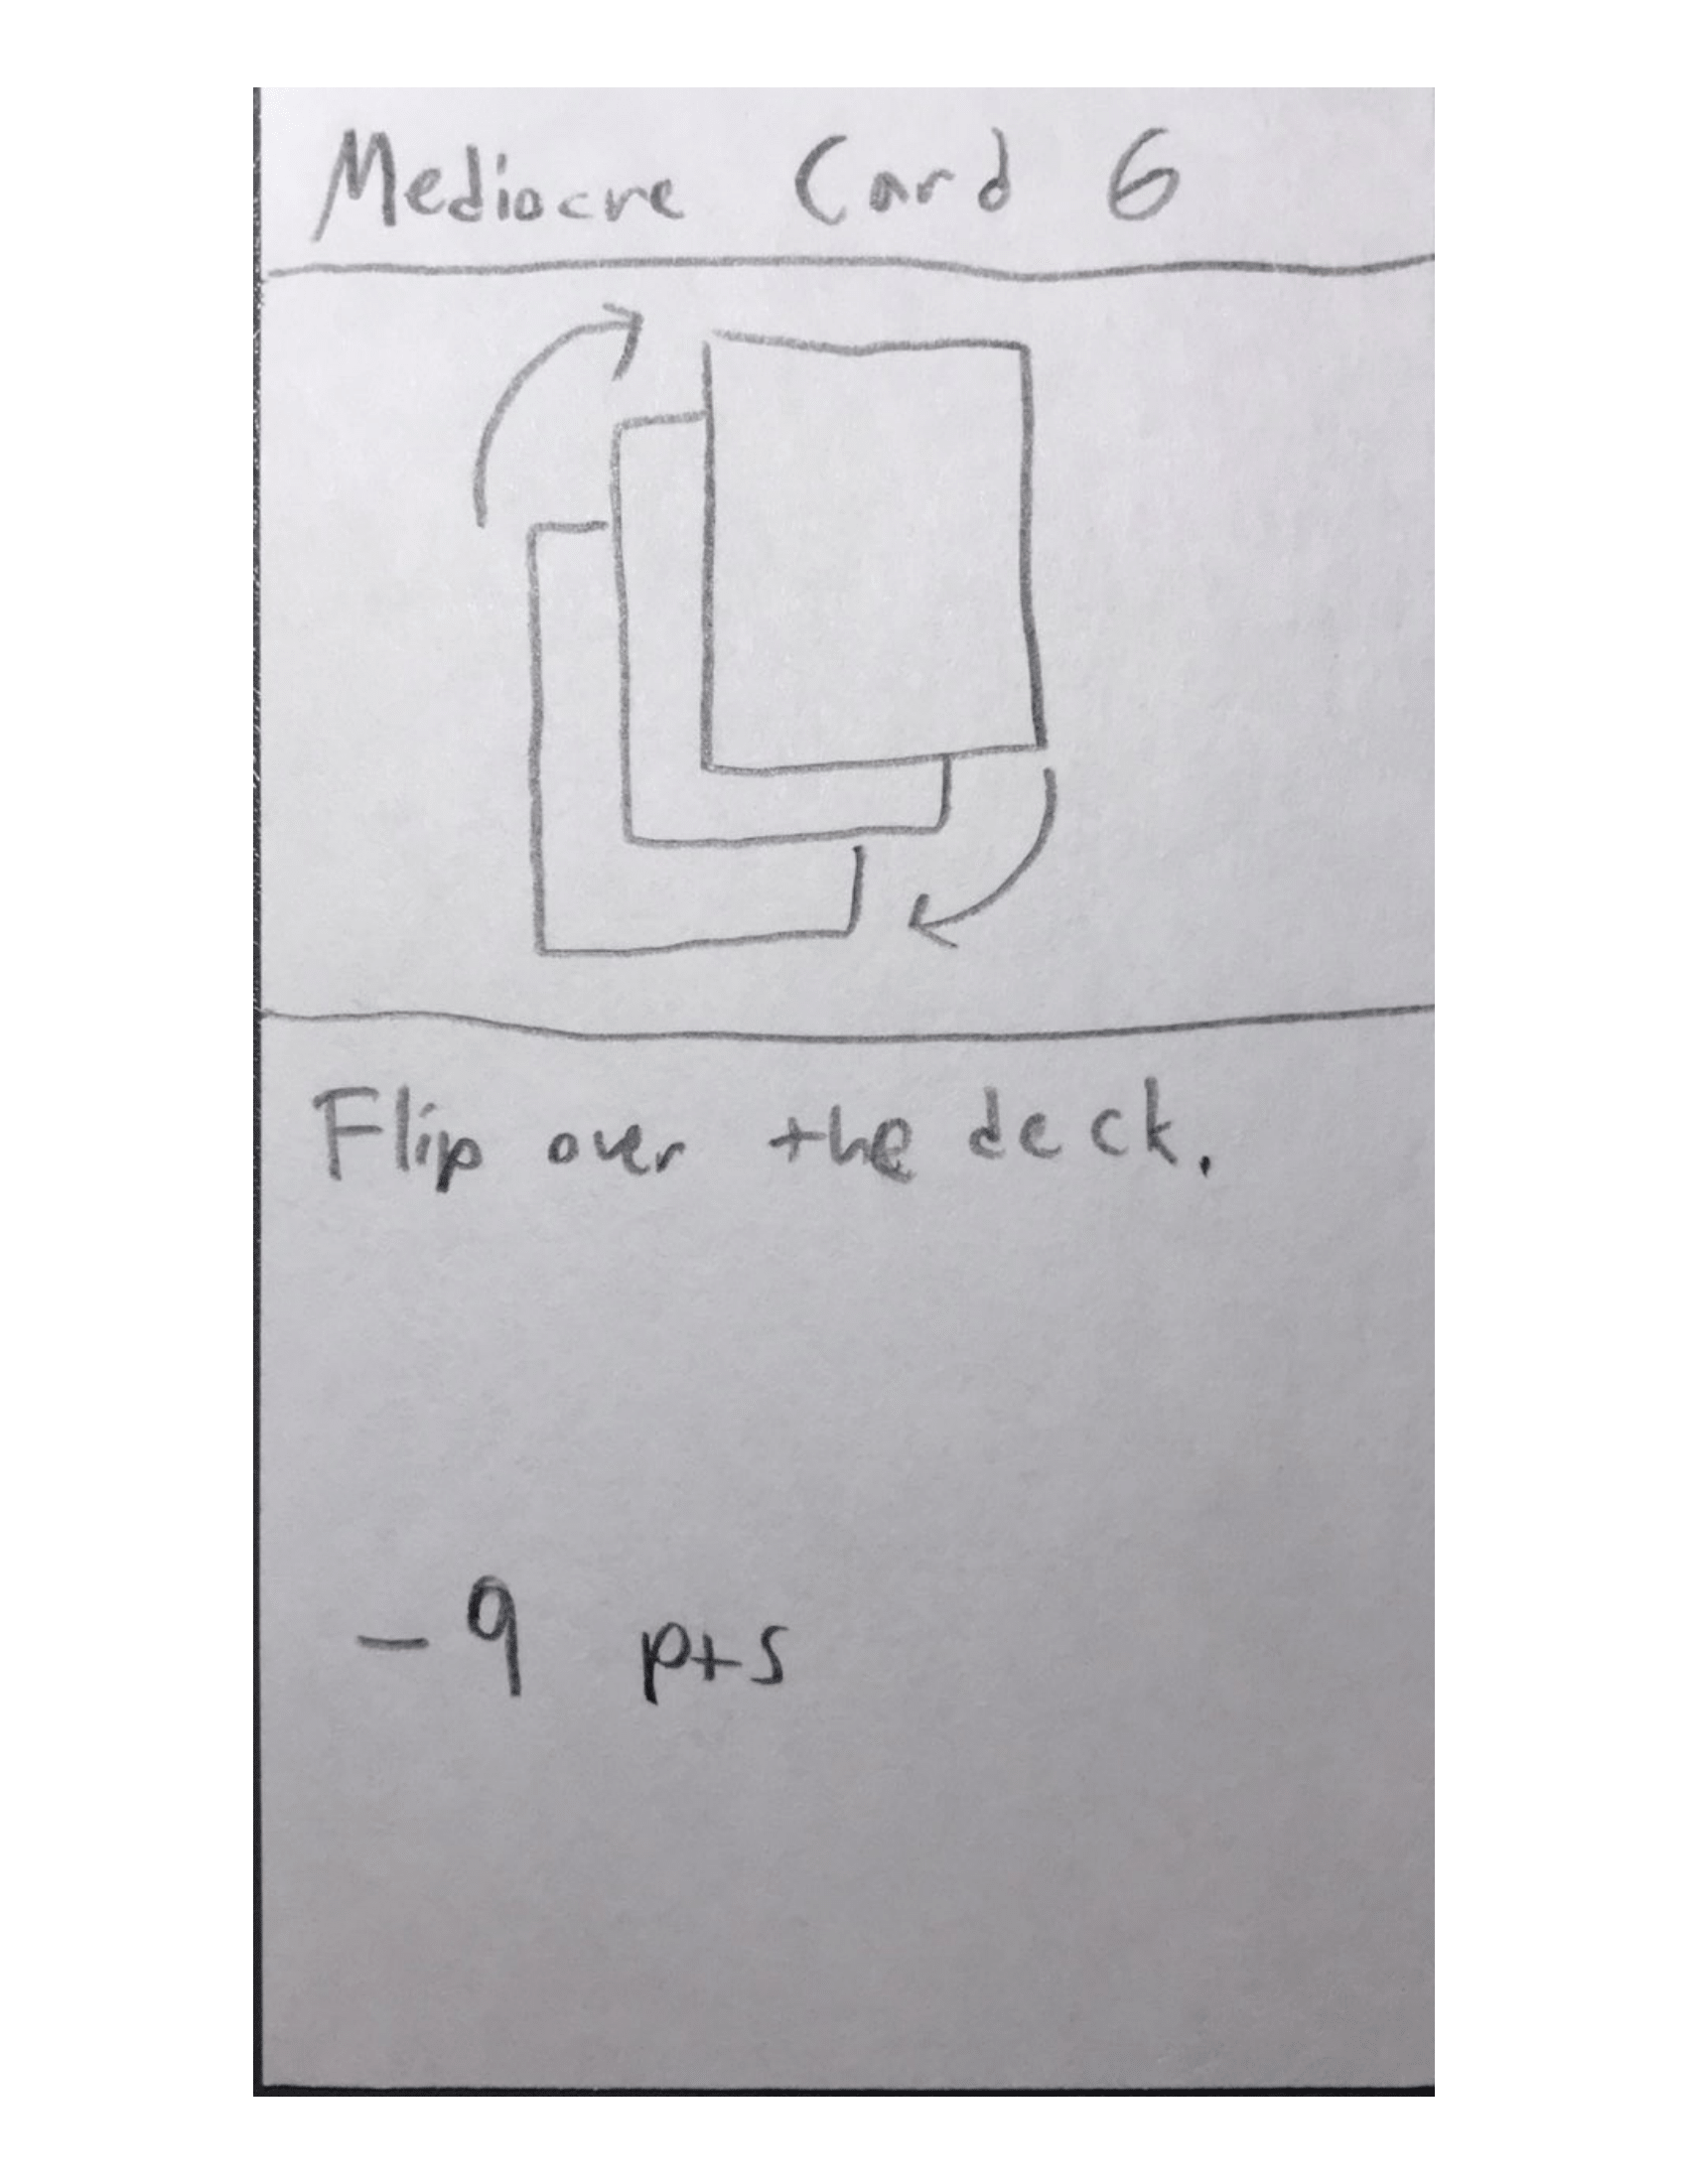 Mediocre Card 6
Flip over the deck.
-9 pts